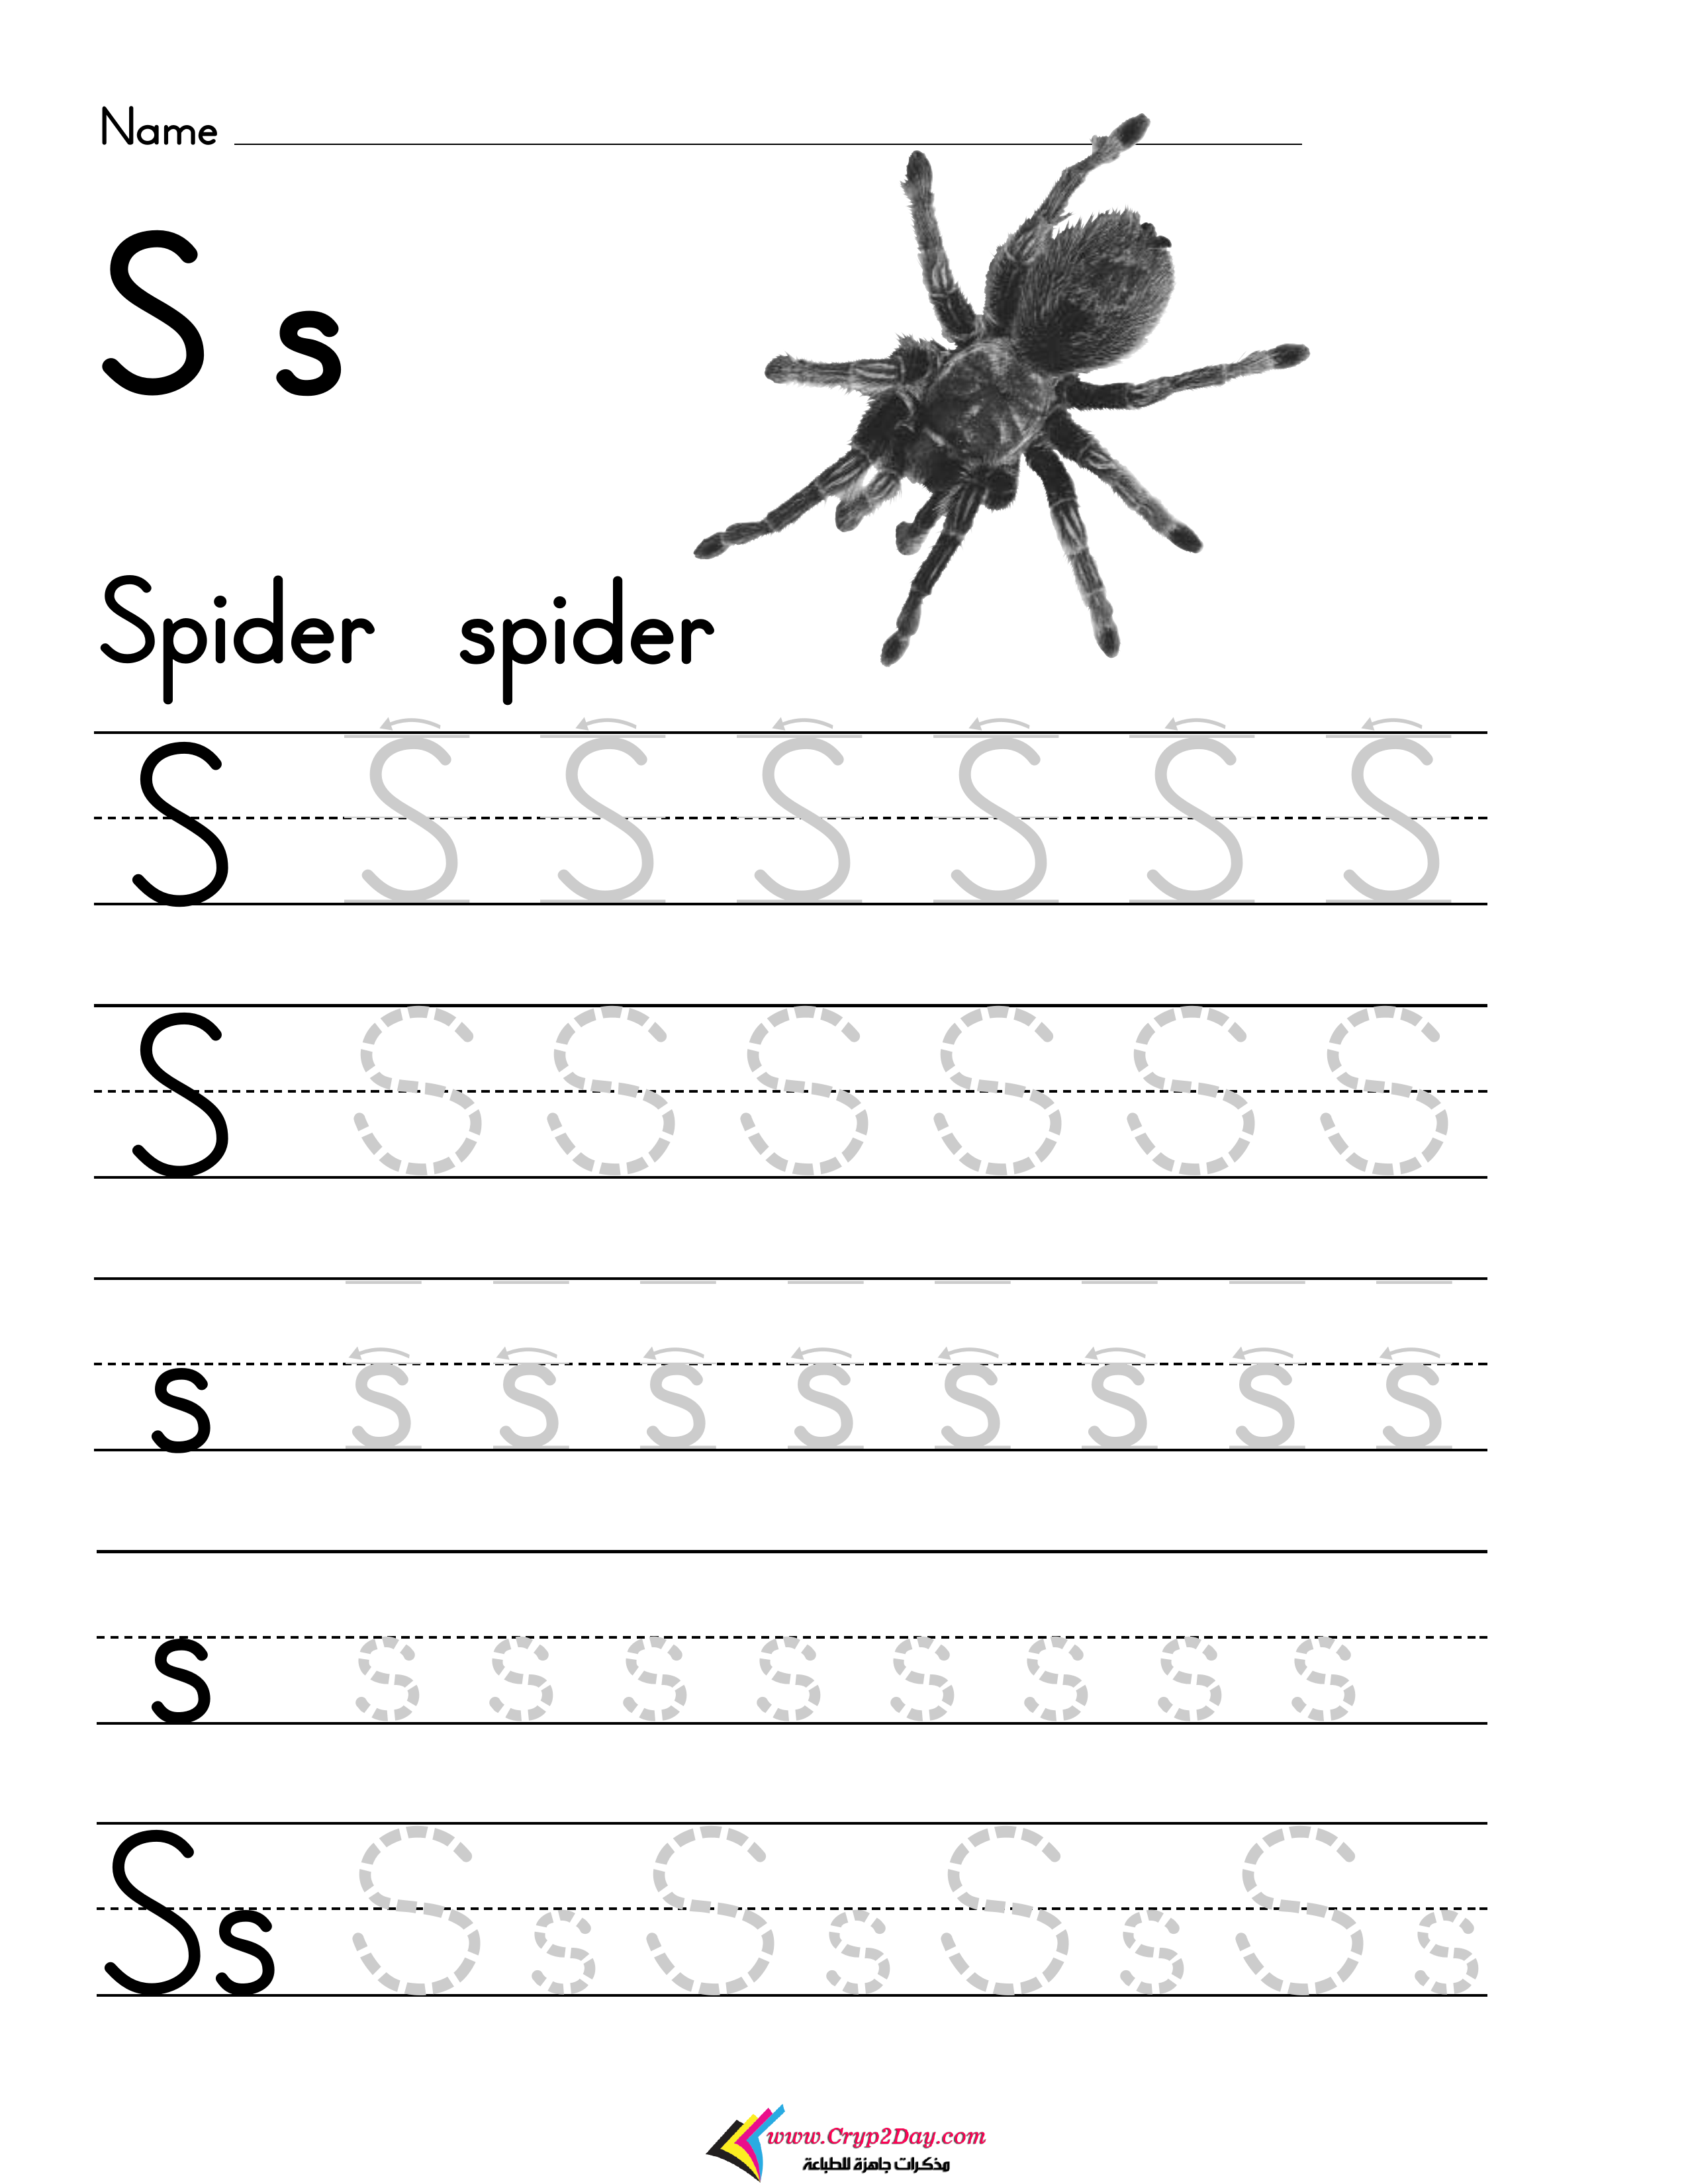 Name
S s
Spider spider
S S S S S S S
S S S S S S S
s s s s s s s s s
s s s s s s s s s
Ss S s S s S s S s
www.Cryp2Day.com
مذكرات جاهزة للطباعة